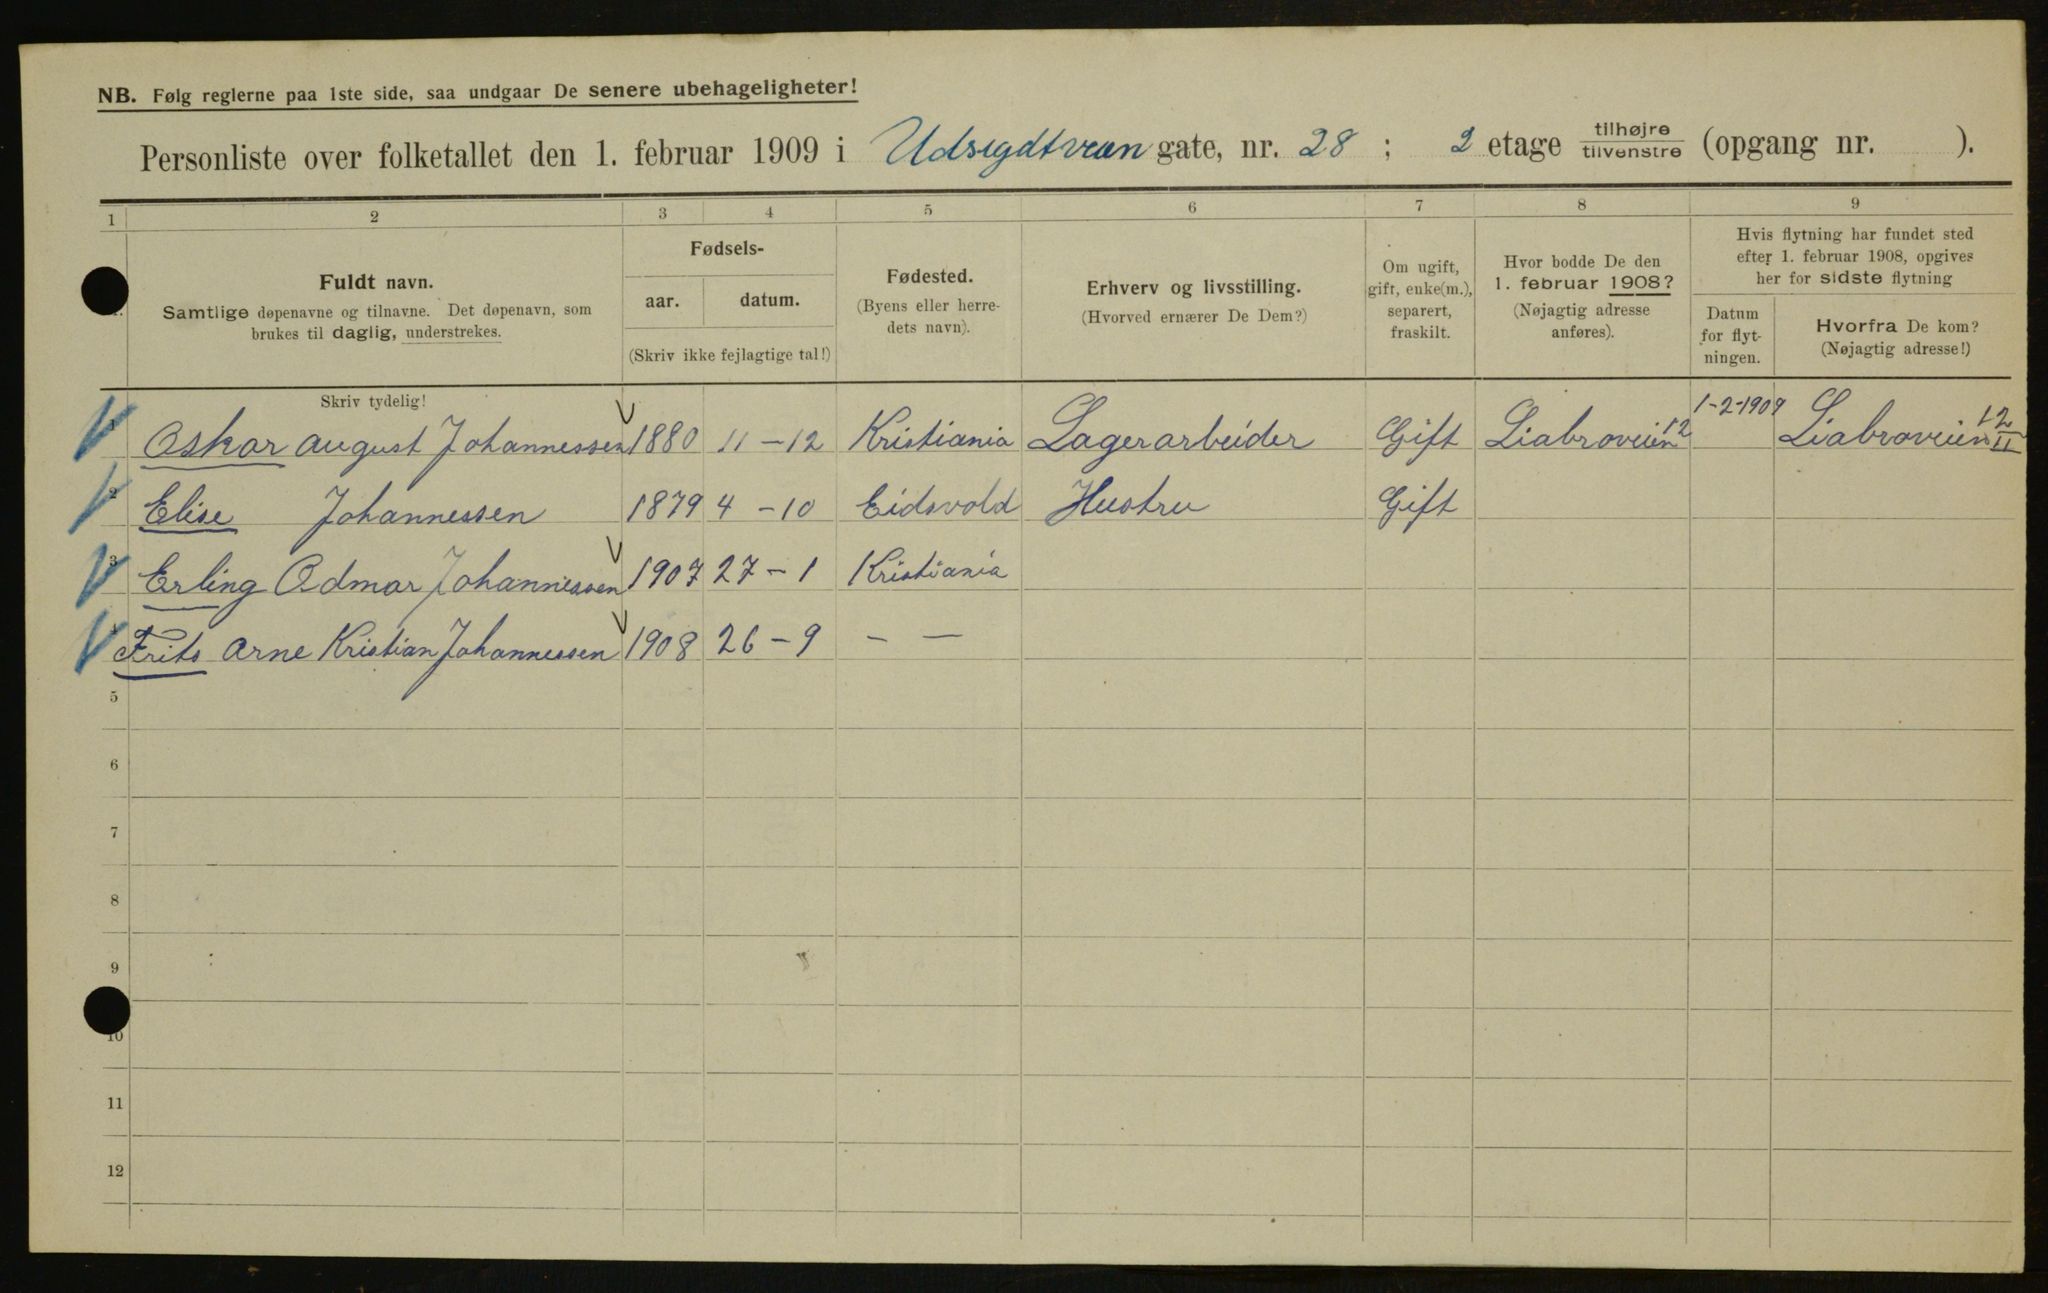 NB. Følg reglerne paa 1ste side, saa undgaar De senere ubehageligheter!
Personliste over folketallet den 1. februar 1909 i Udsigdtveien gate, nr. 28 ; 2 etage tilhøjre/tilvenstre (opgang nr. ).
1 2 3 4 5 6 7 8 9
Fuldt navn.
Samtlige døpenavne og tilnavne. Det døpenavn, som
brukes til daglig, understrekes.
Fødsels-
aar. datum.
(Skriv ikke fejlagtige tal!)
Fødested.
(Byens eller herre-
dets navn).
Erhverv og livsstilling.
(Hvorved ernærer De Dem?)
Om ugift,
gift, enke(m.),
separert,
fraskilt.
Hvor bodde De den
1. februar 1908?
(Nøjagtig adresse
anføres).
Hvis flytning har fundet sted
efter 1. februar 1908, opgives
her for sidste flytning
Datum
for flyt-
ningen.
Hvorfra De kom?
(Nøjagtig adresse!)
Skriv tydelig!
1 Oskar August Johannessen 1880 11-12 Kristiania Lagerarbeider Gift Liabroveien 12 1-2-1909 Liabroveien 12/II
2 Elise Johannessen 1879 4-10 Eidsvold Hustru Gift
3 Erling Odmar Johannessen 1907 27-1 Kristiania
4 Frits Arne Kristian Johannessen 1908 26-9 — —
5
6
7
8
9
10
11
12